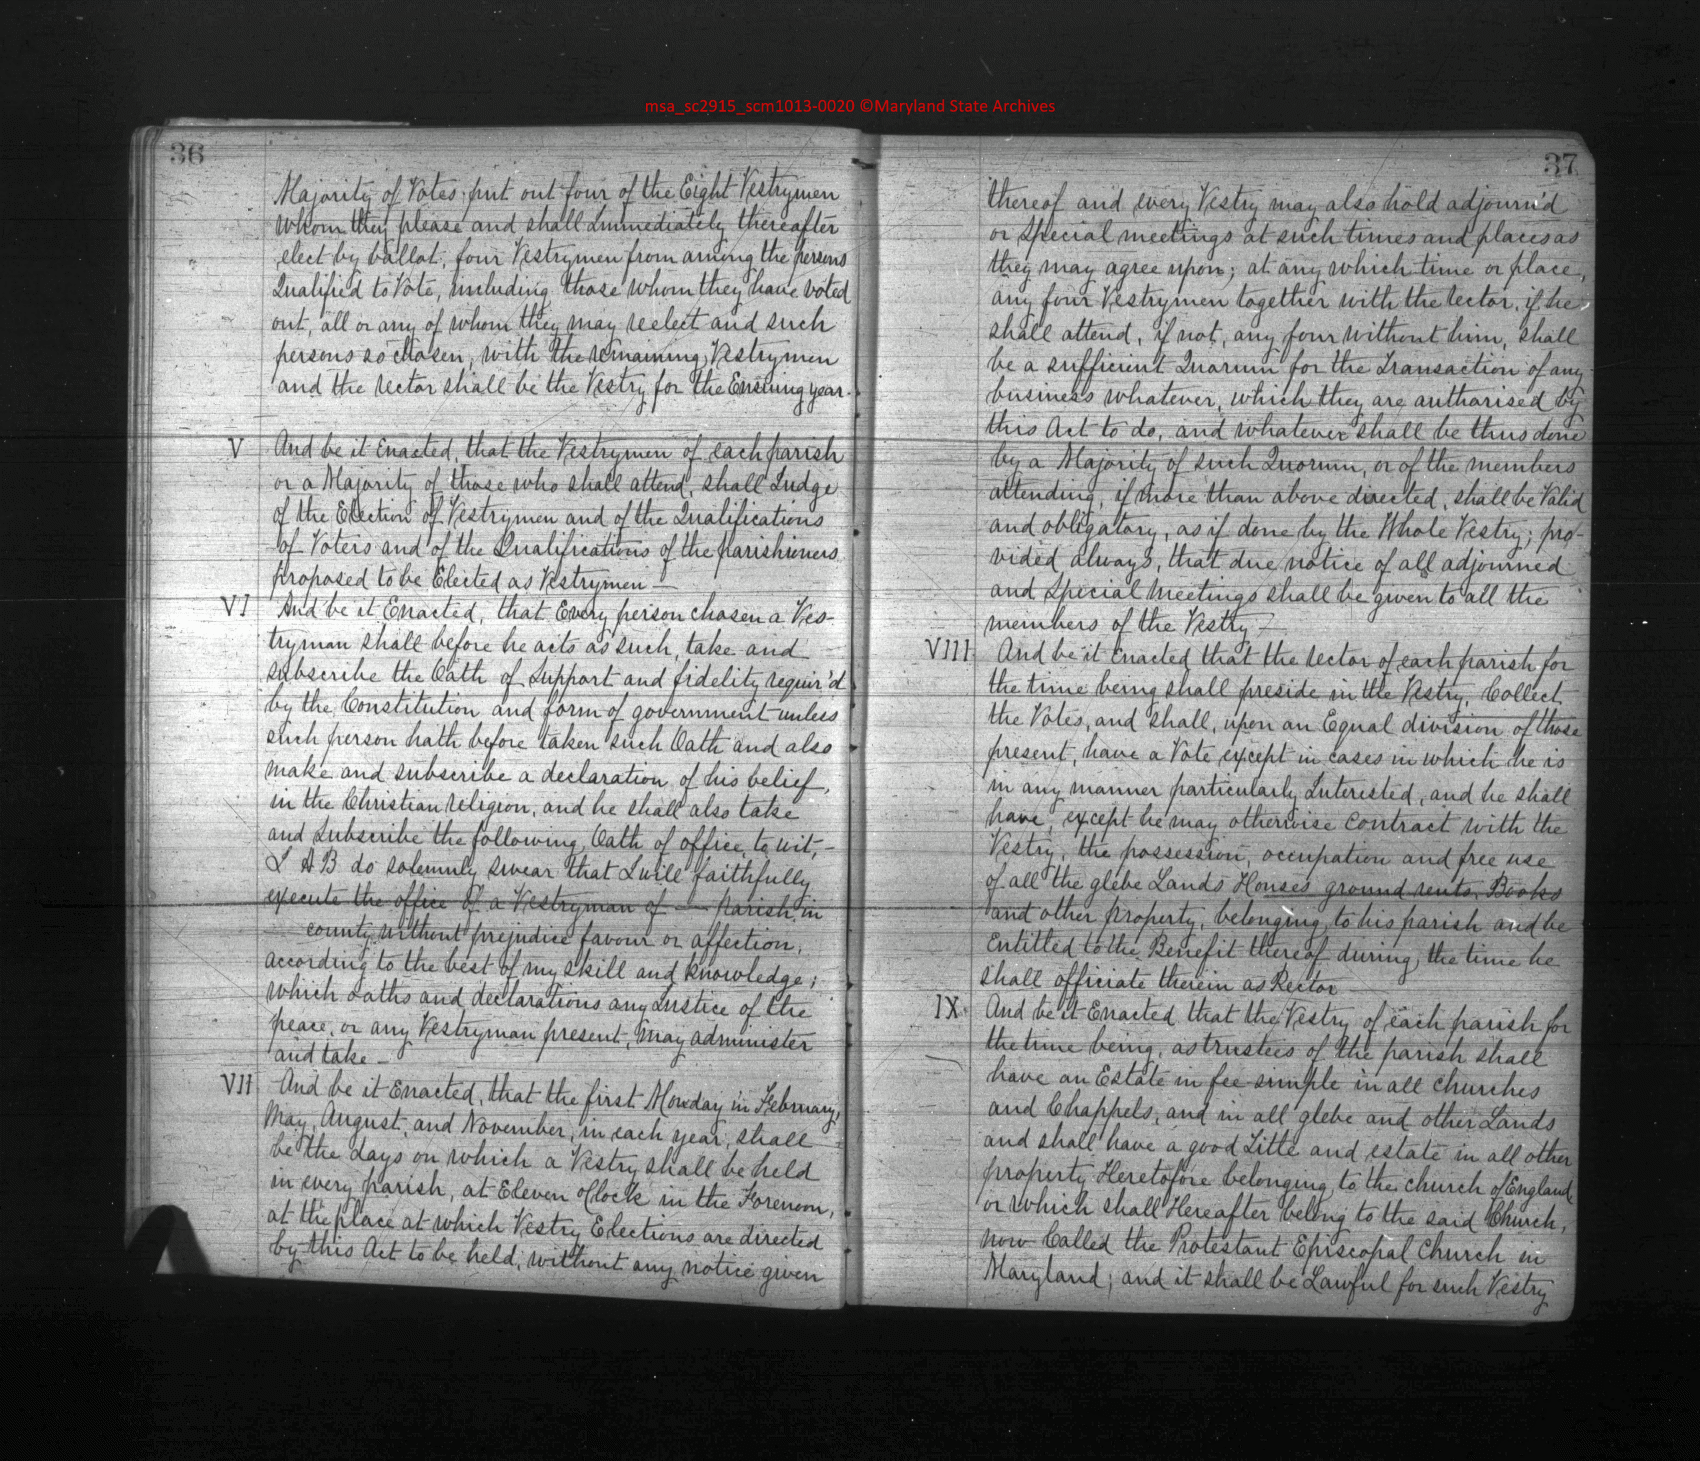 msa_sc2915_scm1013-0020 ©Maryland State Archives
36
Majority of Votes put out four of the Eight Vestrymen
whom they please and shall immediately thereafter
elect by ballot, four Vestrymen from among the persons
Qualified to Vote, including those whom they have voted
out, all or any of whom they may reelect and such
persons so chosen, with the remaining Vestrymen
and the rector shall be the Vestry for the Ensuing year.
V And be it Enacted, that the Vestrymen of each parish
or a Majority of those who shall attend, shall Judge
of the Election of Vestrymen and of the Qualifications
of Voters and of the Qualifications of the parishioners
proposed to be Elected as Vestrymen —
VI And be it Enacted, that Every person chosen a Ves-
tryman shall before he acts as such, take and
subscribe the Oath of Support and fidelity requir'd
by the Constitution and form of government unless
such person hath before taken such Oath and also
make and subscribe a declaration of his belief,
in the Christian religion, and he shall also take
and Subscribe the following Oath of office, to wit, –
I A B do solemnly swear that I will faithfully
execute the office of a Vestryman of — parish in
county without prejudice favour or affection,
according to the best of my skill and knowledge;
which oaths and declarations any Justice of the
peace, or any Vestryman present, may administer
and take –
VII And be it Enacted, that the first Monday in February,
May, August, and November, in each year, shall
be the days on which a Vestry shall be held
in every parish, at Eleven oClock in the Forenoon,
at the place at which Vestry Elections are directed
by this Act to be held, without any notice given
37
thereof and every Vestry may also hold adjourn'd
or Special meetings at such times and places as
they may agree upon; at any which time or place,
any four Vestrymen together with the rector, if he
shall attend, if not, any four without him, shall
be a sufficient Quorum for the Transaction of any
business whatever, which they are authorised by
this Act to do, and whatever shall be thus done
by a Majority of such Quorum, or of the members
attending, if more than above directed, shall be Valid
and obligatory, as if done by the Whole Vestry; pro-
vided always, that due notice of all adjourned
and Special Meetings shall be given to all the
members of the Vestry –
VIII And be it Enacted that the rector of each parish for
the time being shall preside in the Vestry, Collect
the Votes, and shall, upon an Equal division of those
present, have a Vote except in cases in which he is
in any manner particularly Interested, and he shall
have, except he may otherwise contract with the
Vestry, the possession, occupation and free use
of all the glebe Lands Houses ground rents, Books
and other property, belonging to his parish and be
Entitled to the Benefit thereof during the time he
shall officiate therein as Rector —
IX And be it Enacted that the Vestry of each parish for
the time being, as trustees of the parish shall
have an Estate in fee simple in all churches
and Chappels, and in all glebe and other Lands
and shall have a good Title and estate in all other
property Heretofore belonging to the church of England
or which shall Hereafter belong to the said Church,
now Called the Protestant Episcopal Church in
Maryland; and it shall be Lawful for such Vestry